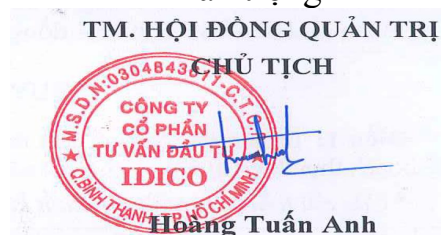 TM. HỘI ĐỒNG QUẢN TRỊ
CHỦ TỊCH
M.S.D.N:0304843611-C.T.C.P
CÔNG TY
CỔ PHẦN
TƯ VẤN ĐẦU TƯ
IDICO
Q.BÌNH THẠNH-TP HỒ CHÍ MINH
Hoàng Tuấn Anh